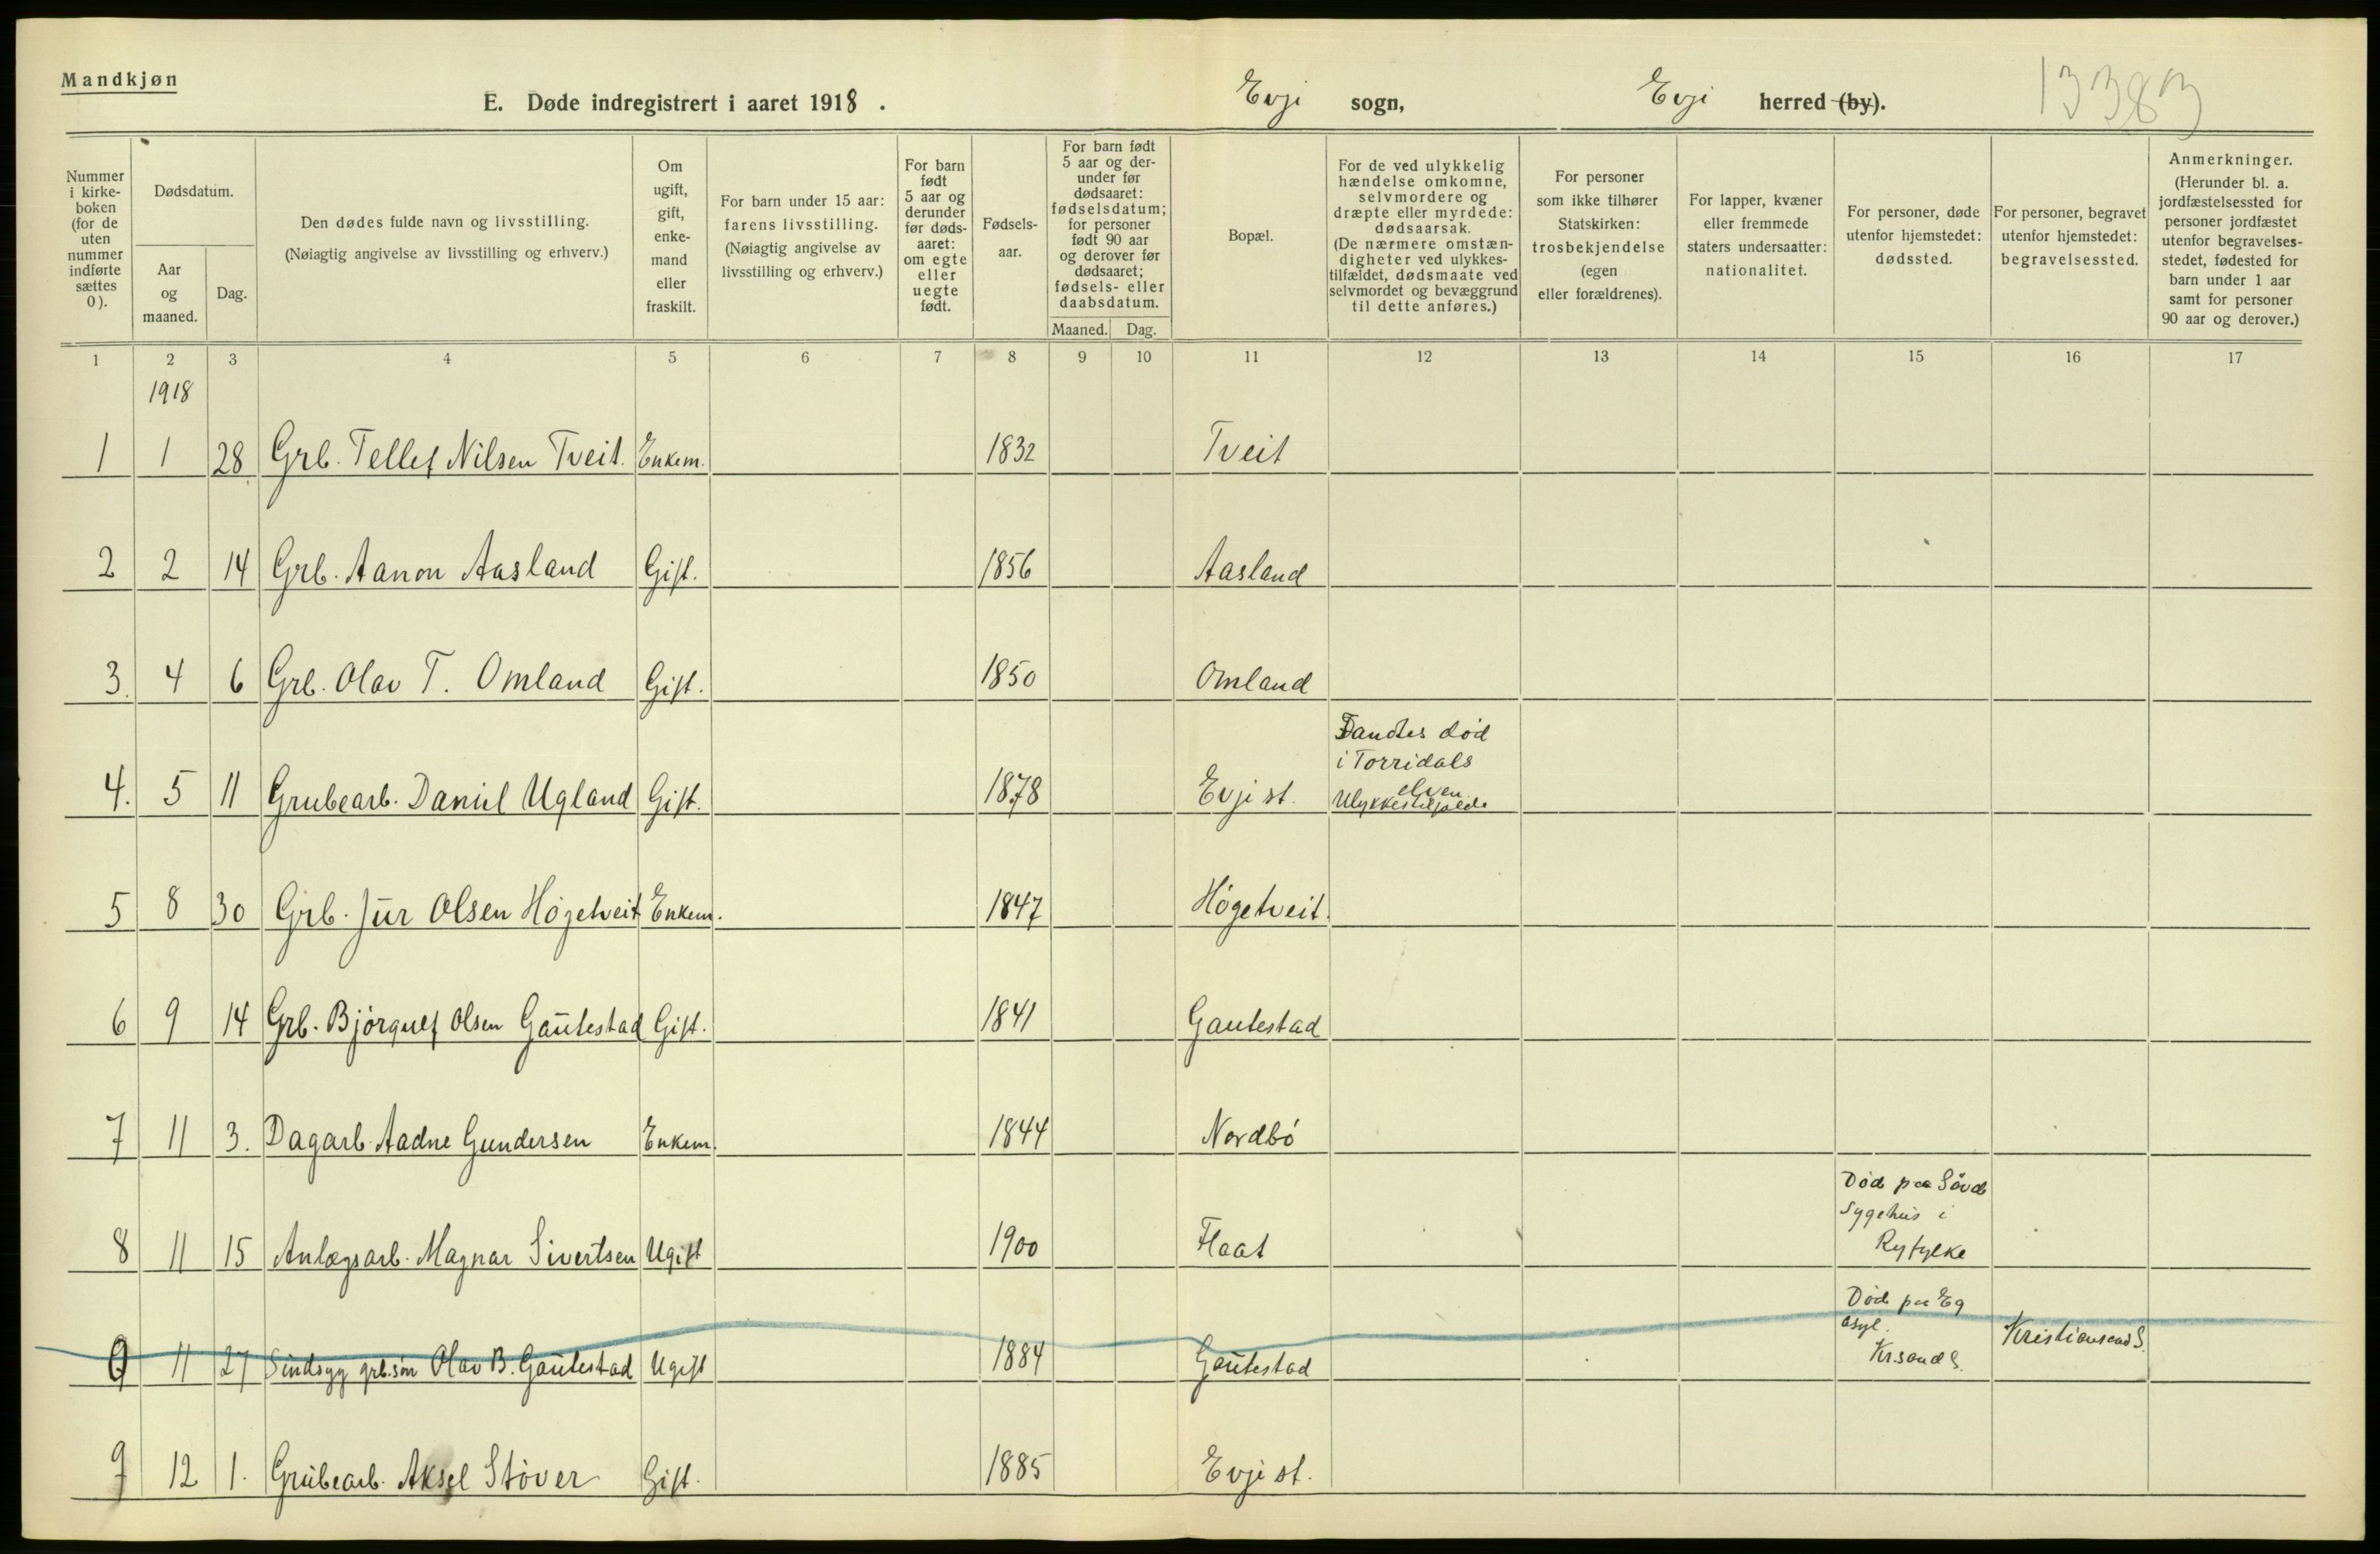 Mandkjøn
E. Døde indregistrert i aaret 1918. Evje sogn, Evje herred (by). 13383
Nummer i kirke-boken (for de uten nummer indførte sættes 0).
Dødsdatum.
Aar og maaned.
Dag.
Den dødes fulde navn og livsstilling.
(Nøiagtig angivelse av livsstilling og erhverv.)
Om ugift, gift, enke-mand eller fraskilt.
For barn under 15 aar: farens livsstilling.
(Nøiagtig angivelse av livsstilling og erhverv.)
For barn født 5 aar og derunder før døds-aaret: om egte eller uegte født.
Fødsels-aar.
For barn født 5 aar og der-under før dødsaaret: fødselsdatum; for personer født 90 aar og derover før dødsaaret; fødsels- eller daabsdatum.
Maaned. Dag.
Bopæl.
For de ved ulykkelig hændelse omkomne, selvmordere og dræpte eller myrdede: dødsaarsak.
(De nærmere omstæn-digheter ved ulykkes-tilfældet, dødsmaate ved selvmordet og bevæggrund til dette anføres.)
For personer som ikke tilhører Statskirken: trosbekjendelse (egen eller forældrenes).
For lapper, kvæner eller fremmede staters undersaatter: nationalitet.
For personer, døde utenfor hjemstedet: dødssted.
For personer, begravet utenfor hjemstedet: begravelsessted.
Anmerkninger.
(Herunder bl. a. jordfæstelsessted for personer jordfæstet utenfor begravelses-stedet, fødested for barn under 1 aar samt for personer 90 aar og derover.)
1 2 3 4 5 6 7 8 9 10 11 12 13 14 15 16 17
1918
1 1 28 Grb. Tellef Nilsen Tveit. Enkem. 1832 Tveit
2 2 14 Grb. Aanon Aasland Gift. 1856 Aasland
3. 4 6 Grb. Olav T. Omland Gift. 1850 Omland
4. 5 11 Grubearb. Daniel Ugland Gift. 1878 Evje st. Fandtes død
i Torridals
elven.
Ulykkestilfælde
5 8 30 Grb. Jur Olsen Högetveit Enkem. 1847 Högetveit.
6 9 14 Grb. Björgulf Olsen Gautestad Gift. 1841 Gautestad
7 11 3. Dagarb. Aadne Gundersen Enkem. 1844 Nordbö
8 11 15 Anlægsarb. Magnar Sivertsen Ugift 1900 Flaat Död paa
Sygehus i
Ryfylke
0 11 27 Sindsyg grb.sön Olav B. Gautestad Ugift 1884 Gautestad Död paa Eg
asyl.
Kr.sand S. Kristiansand S.
9 12 1. Grubearb. Aksel Stöver Gift. 1885 Evje st.